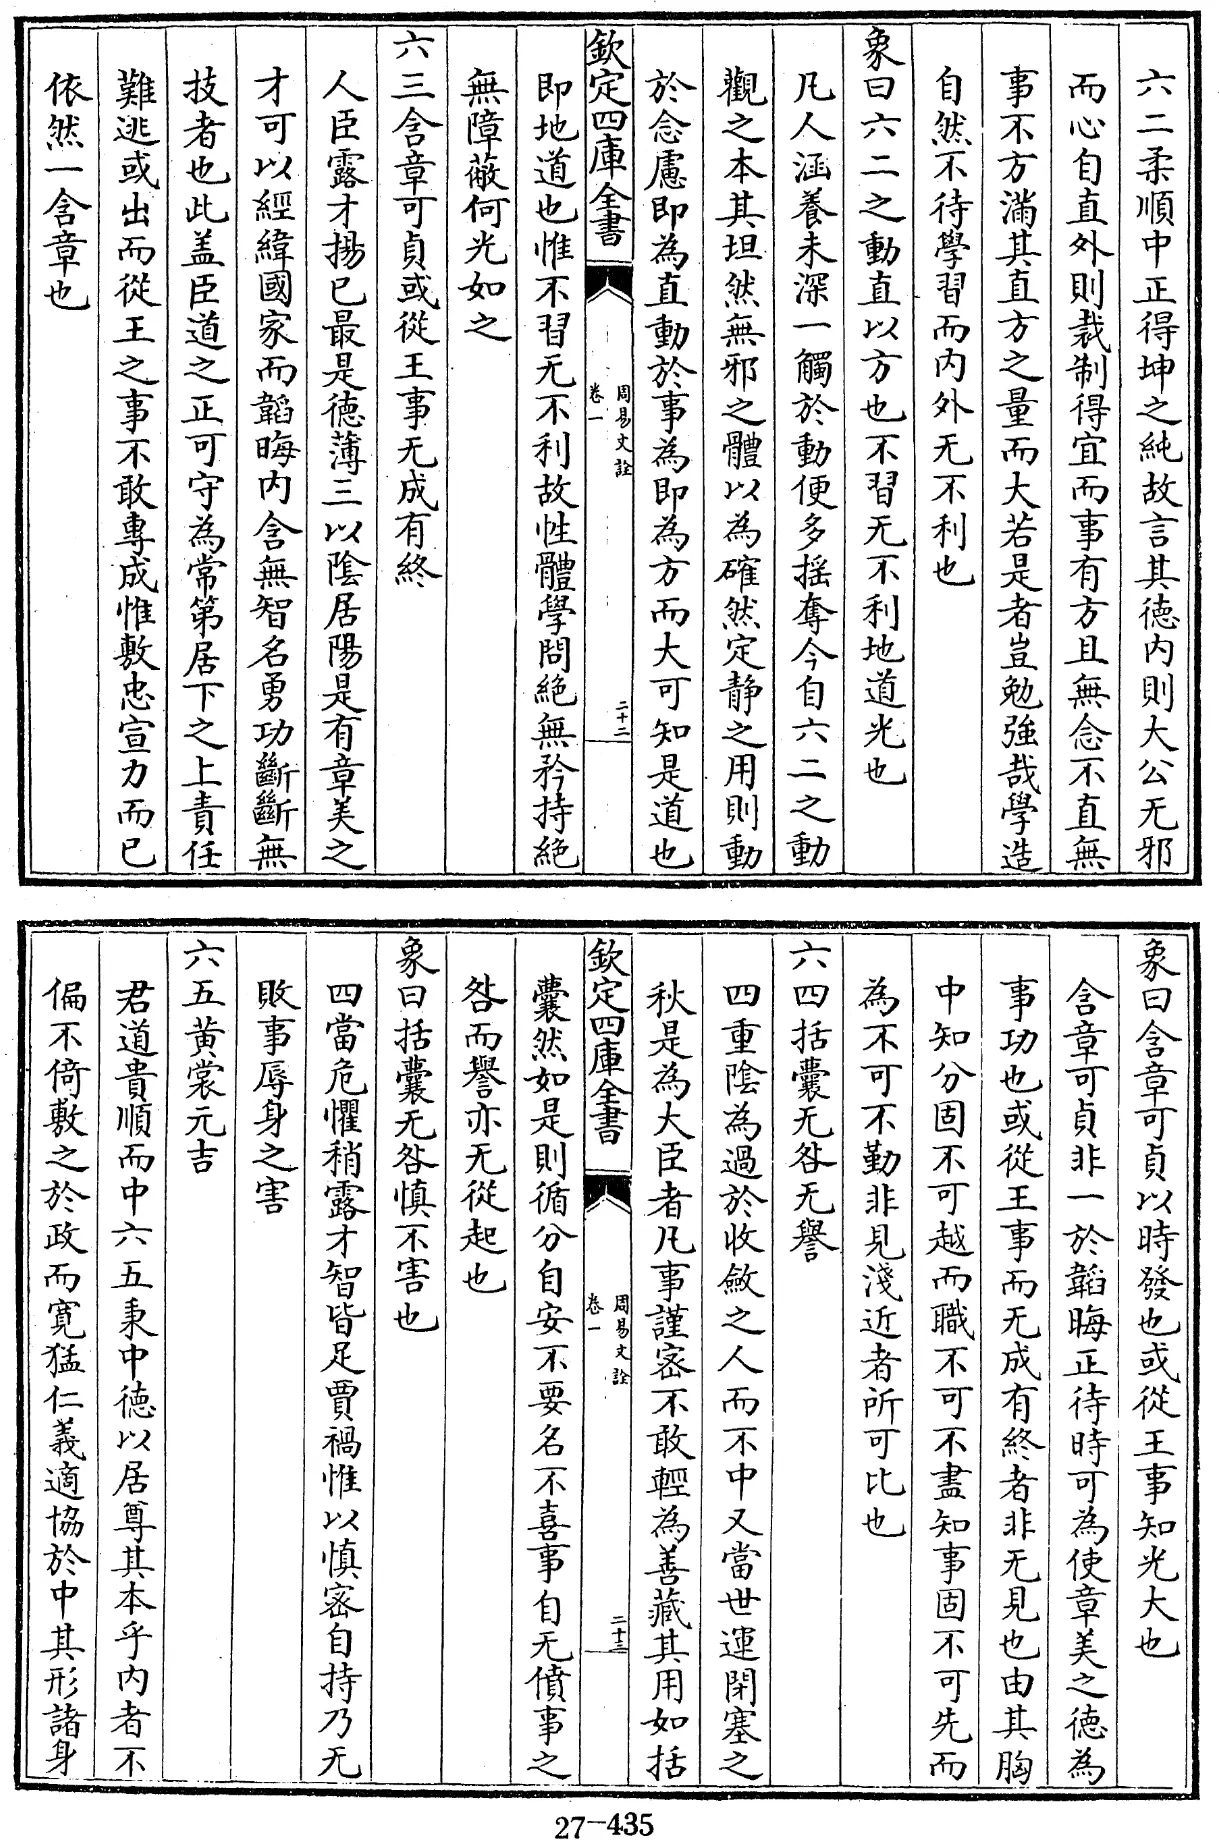 六二柔順中正得坤之純故言其徳内則大公无邪
而心自直外則裁制得宜而事有方且無念不直無
事不方滿其直方之量而大若是者豈勉強哉學造
自然不待學習而内外无不利也
象曰六二之動直以方也不習无不利地道光也
凡人涵養未深一觸於動便多揺奪今自六二之動
觀之本其坦然無邪之體以為確然定静之用則動
於念慮即為直動於事為即為方而大可知是道也
欽定四庫全書
周易文詮
卷一
二十二
即地道也惟不習无不利故性體學問絶無矜持絶
無障蔽何光如之
六三含章可貞或從王事无成有終
人臣露才揚已最是徳薄三以陰居陽是有章美之
才可以經緯國家而韜晦内含無智名勇功斷斷無
技者也此盖臣道之正可守為常第居下之上責任
難逃或出而從王之事不敢專成惟敷忠宣力而已
依然一含章也
象曰含章可貞以時發也或從王事知光大也
含章可貞非一於韜晦正待時可為使章美之徳為
事功也或從王事而无成有終者非无見也由其胸
中知分固不可越而職不可不盡知事固不可先而
為不可不勤非見淺近者所可比也
六四括囊无咎无譽
四重陰為過於收斂之人而不中又當世運閉塞之
秋是為大臣者凡事謹宻不敢輕為善藏其用如括
欽定四庫全書
周易文詮
卷一
二十三
囊然如是則循分自安不要名不喜事自无僨事之
咎而譽亦无從起也
象曰括囊无咎慎不害也
四當危懼稍露才智皆足賈禍惟以慎宻自持乃无
敗事辱身之害
六五黄裳元吉
君道貴順而中六五秉中徳以居尊其本乎内者不
偏不倚敷之於政而寛猛仁義適協於中其形諸身
27-435